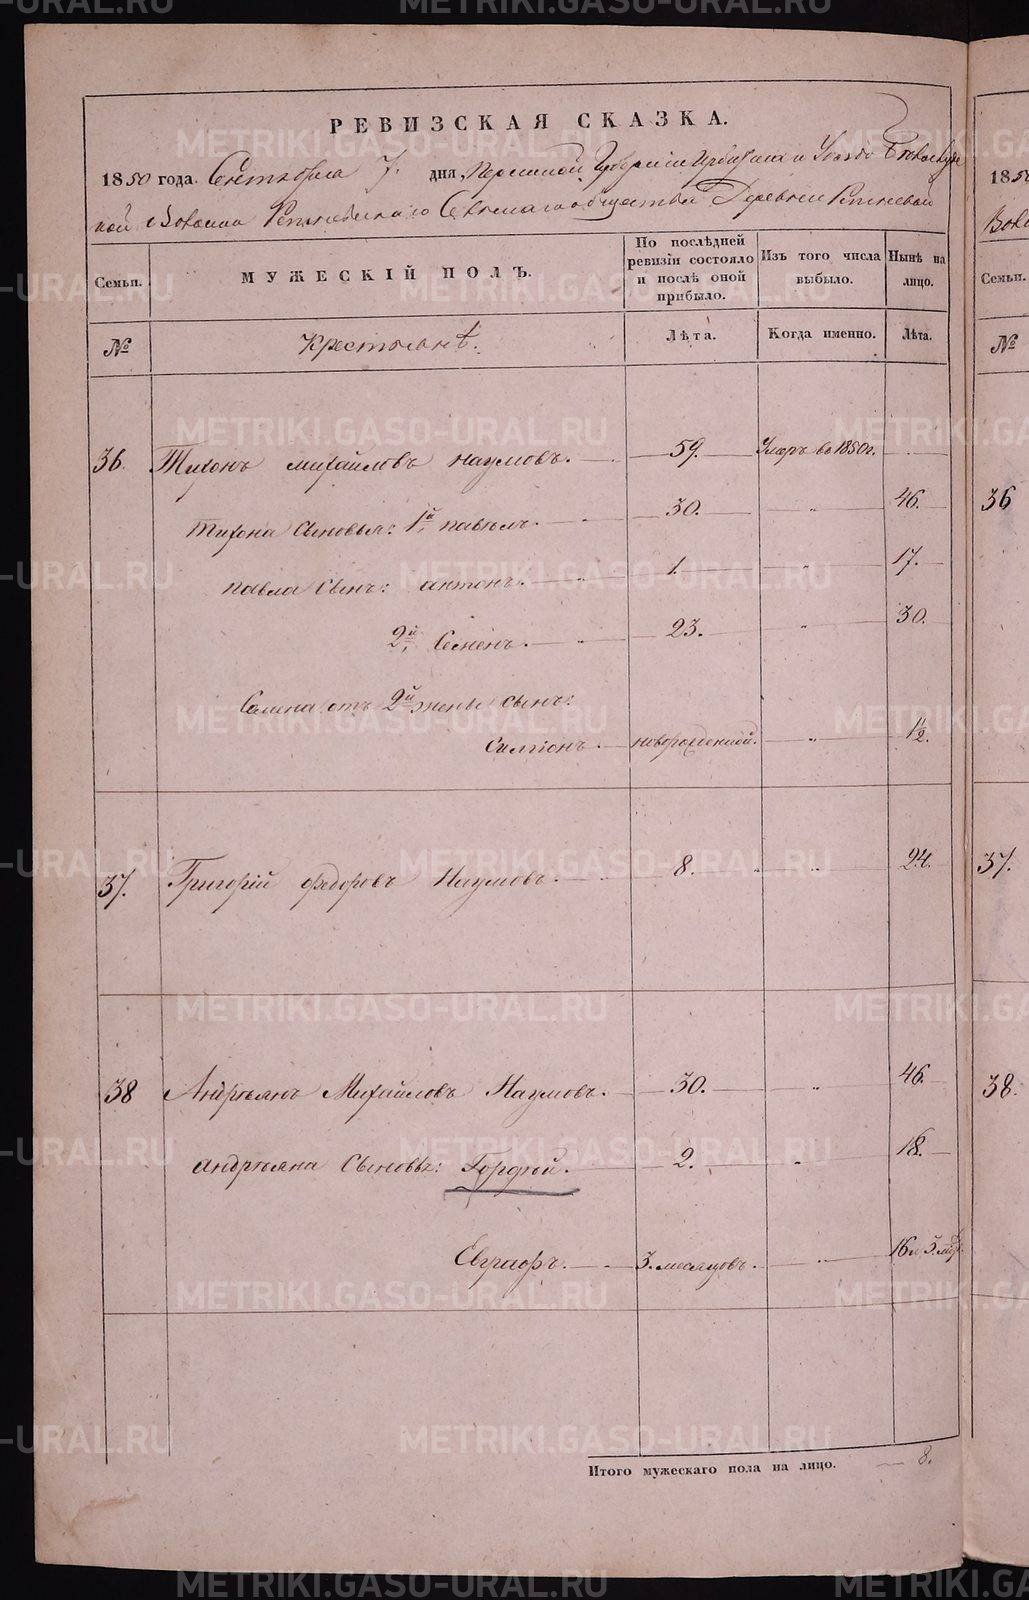 РЕВИЗСКАЯ СКАЗКА.
1850 года. Сентября 7. дня, Пермской Губернии Ирбитскаго Уезда
кой Волости Сельскаго общества Деревни Речкевой
Семьи.
МУЖЕСКІЙ ПОЛЪ.
По послѣдней ревизіи состояло и послѣ оной прибыло.
Изъ того числа выбыло.
Нынѣ на лицо.
№
Крестьянѣ.
Лѣта.
Когда именно.
Лѣта.
36. Тихонъ михайловъ наумовъ. 59. Умеръ въ 1850г.
тихона Сыновья: 1й павелъ. 30. " 46.
павла Сынъ: антонъ. " 1. " 17.
2й Семенъ. " 23. " 30.
Семена отъ 2й жены сынъ:
Симіонъ. новорожденной. " 1½.
37. Григорій федоровъ Наумовъ. 8. " " 24.
38 Андреянъ Михайловъ Наумовъ. 30. " 46.
андреяна Сыновья: Гордѣй. 2. " 18.
Евграфъ. 3. месяцовъ. " 16 и 3. мѣс.
Итого мужескаго пола на лицо. 8.
1850
Воло
Семьи.
№
36
37.
38.
METRIKI.GASO-URAL.RU